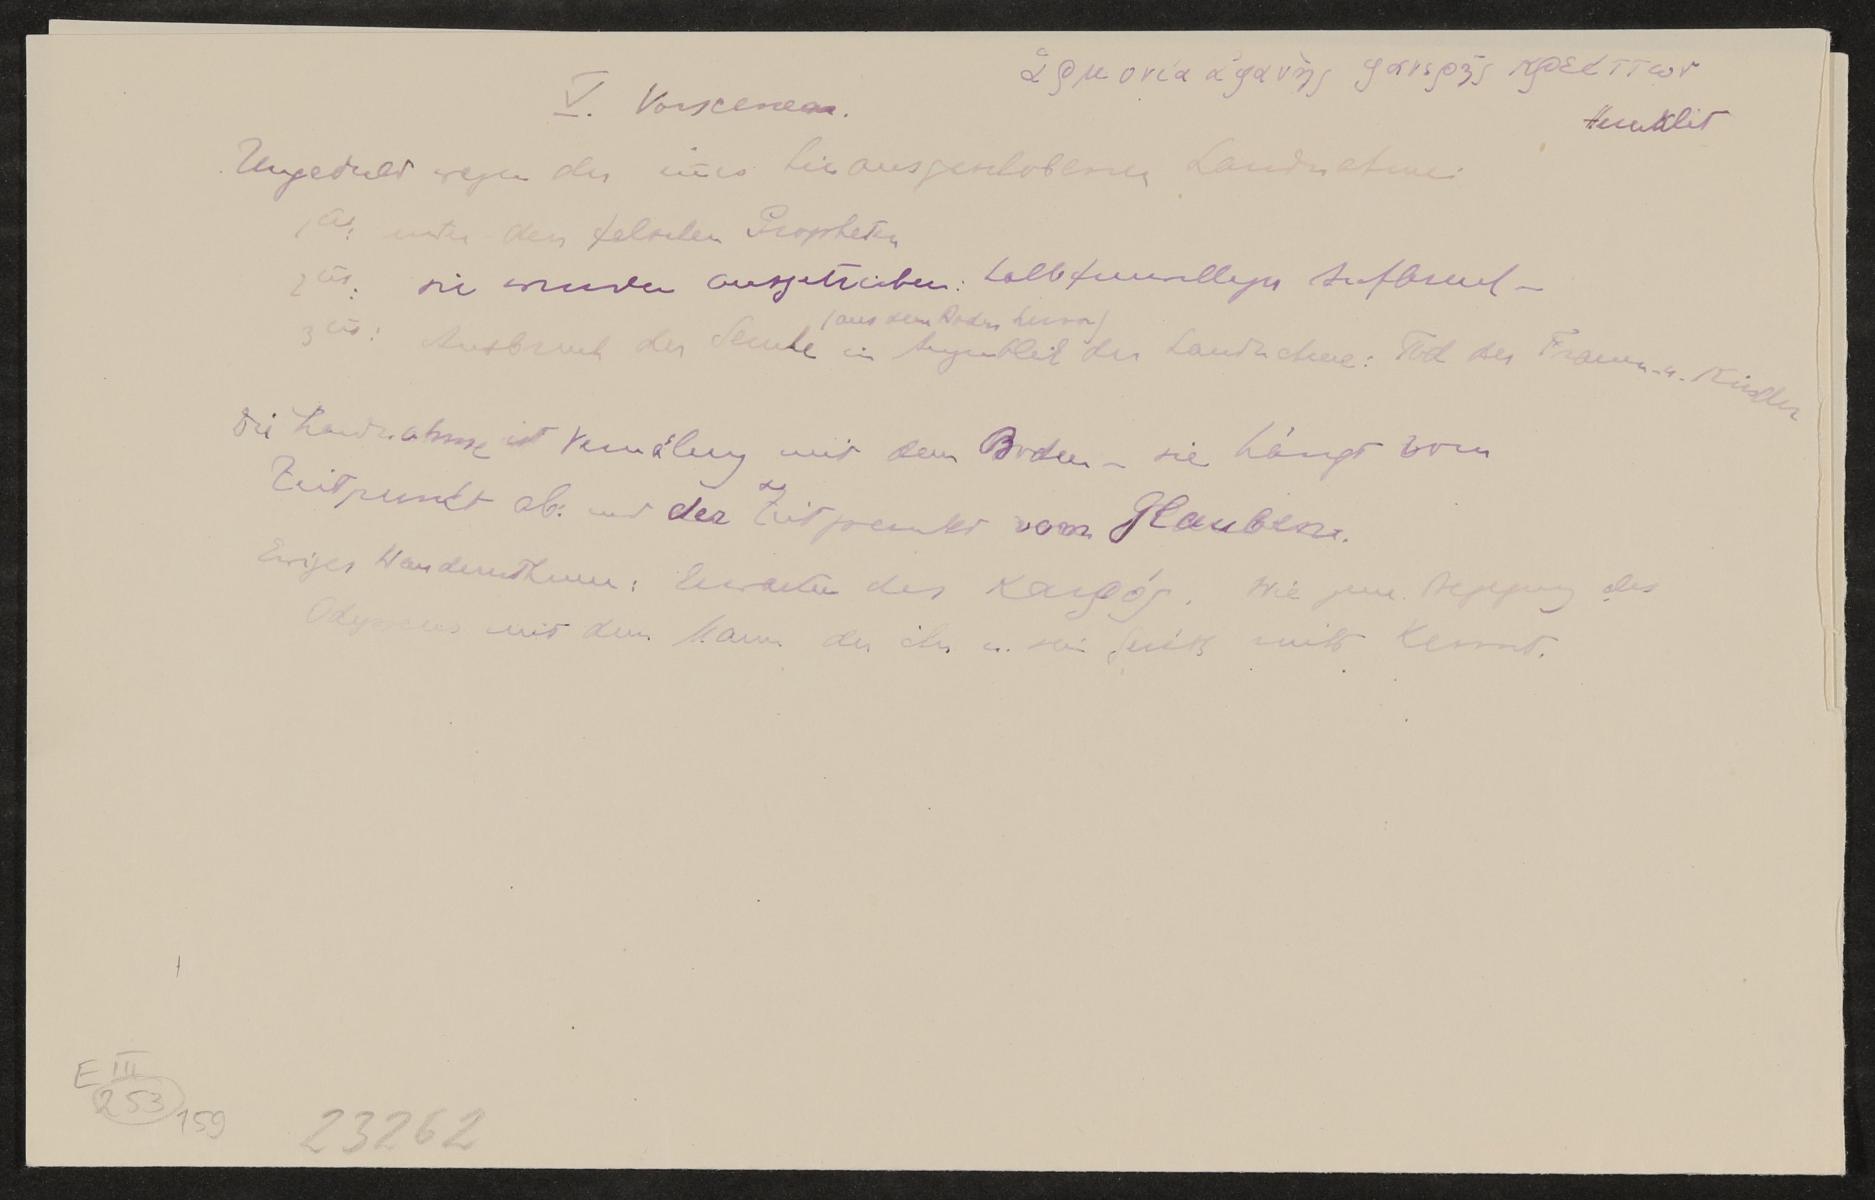 ἁρμονία ἀφανὴς φανερῆς κρείττων
Heraklit
V. Vorscenen.
Ungeduld wegen der immer hinausgeschobenen Landnahme:
1
unter den falschen Propheten
2
sie wurden ausgetrieben: halbfreiwilliger Aufbruch –
(aus dem Boden hervor)
3
Ausbruch der Seuche im Augenblick der Landnahme: Tod der Frauen u. Kinder
Die Landnahme ist Vermälung mit dem Boden – sie hängt vom
Zeitpunkt ab: und der Zeitpunkt vom Glauben.
Ewiges Wandern: Erwarten des καιρός. Wie jene Begegnung des
Odysseus mit dem Mann der ihn u. sein nicht kennt.
E III
253
159
23262